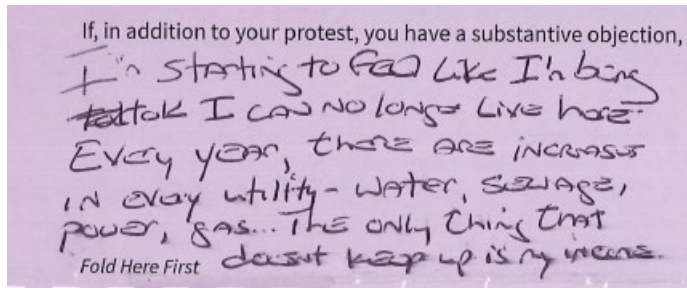 If, in addition to your protest, you have a substantive objection,
I'm starting to feel like I'm being
told I can no longer live here.
Every year, there are increases
in every utility - water, sewage,
power, gas... The only thing that
doesn't keep up is my income.
Fold Here First